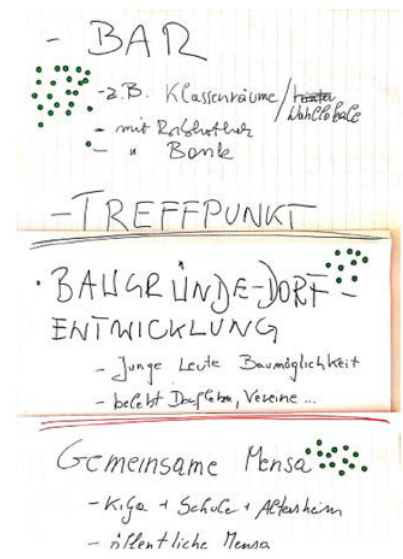 - BAR
-z.B. Klassenräume/
Wahllokale
- mit Bibliothek
- " Bank
- TREFFPUNKT
· BAUGRÜNDE-DORF-
ENTWICKLUNG
- Junge Leute Baumöglichkeit
- belebt Dorfleben, Vereine ...
Gemeinsame Mensa
- KiGa + Schule + Altersheim
- öffentliche Mensa